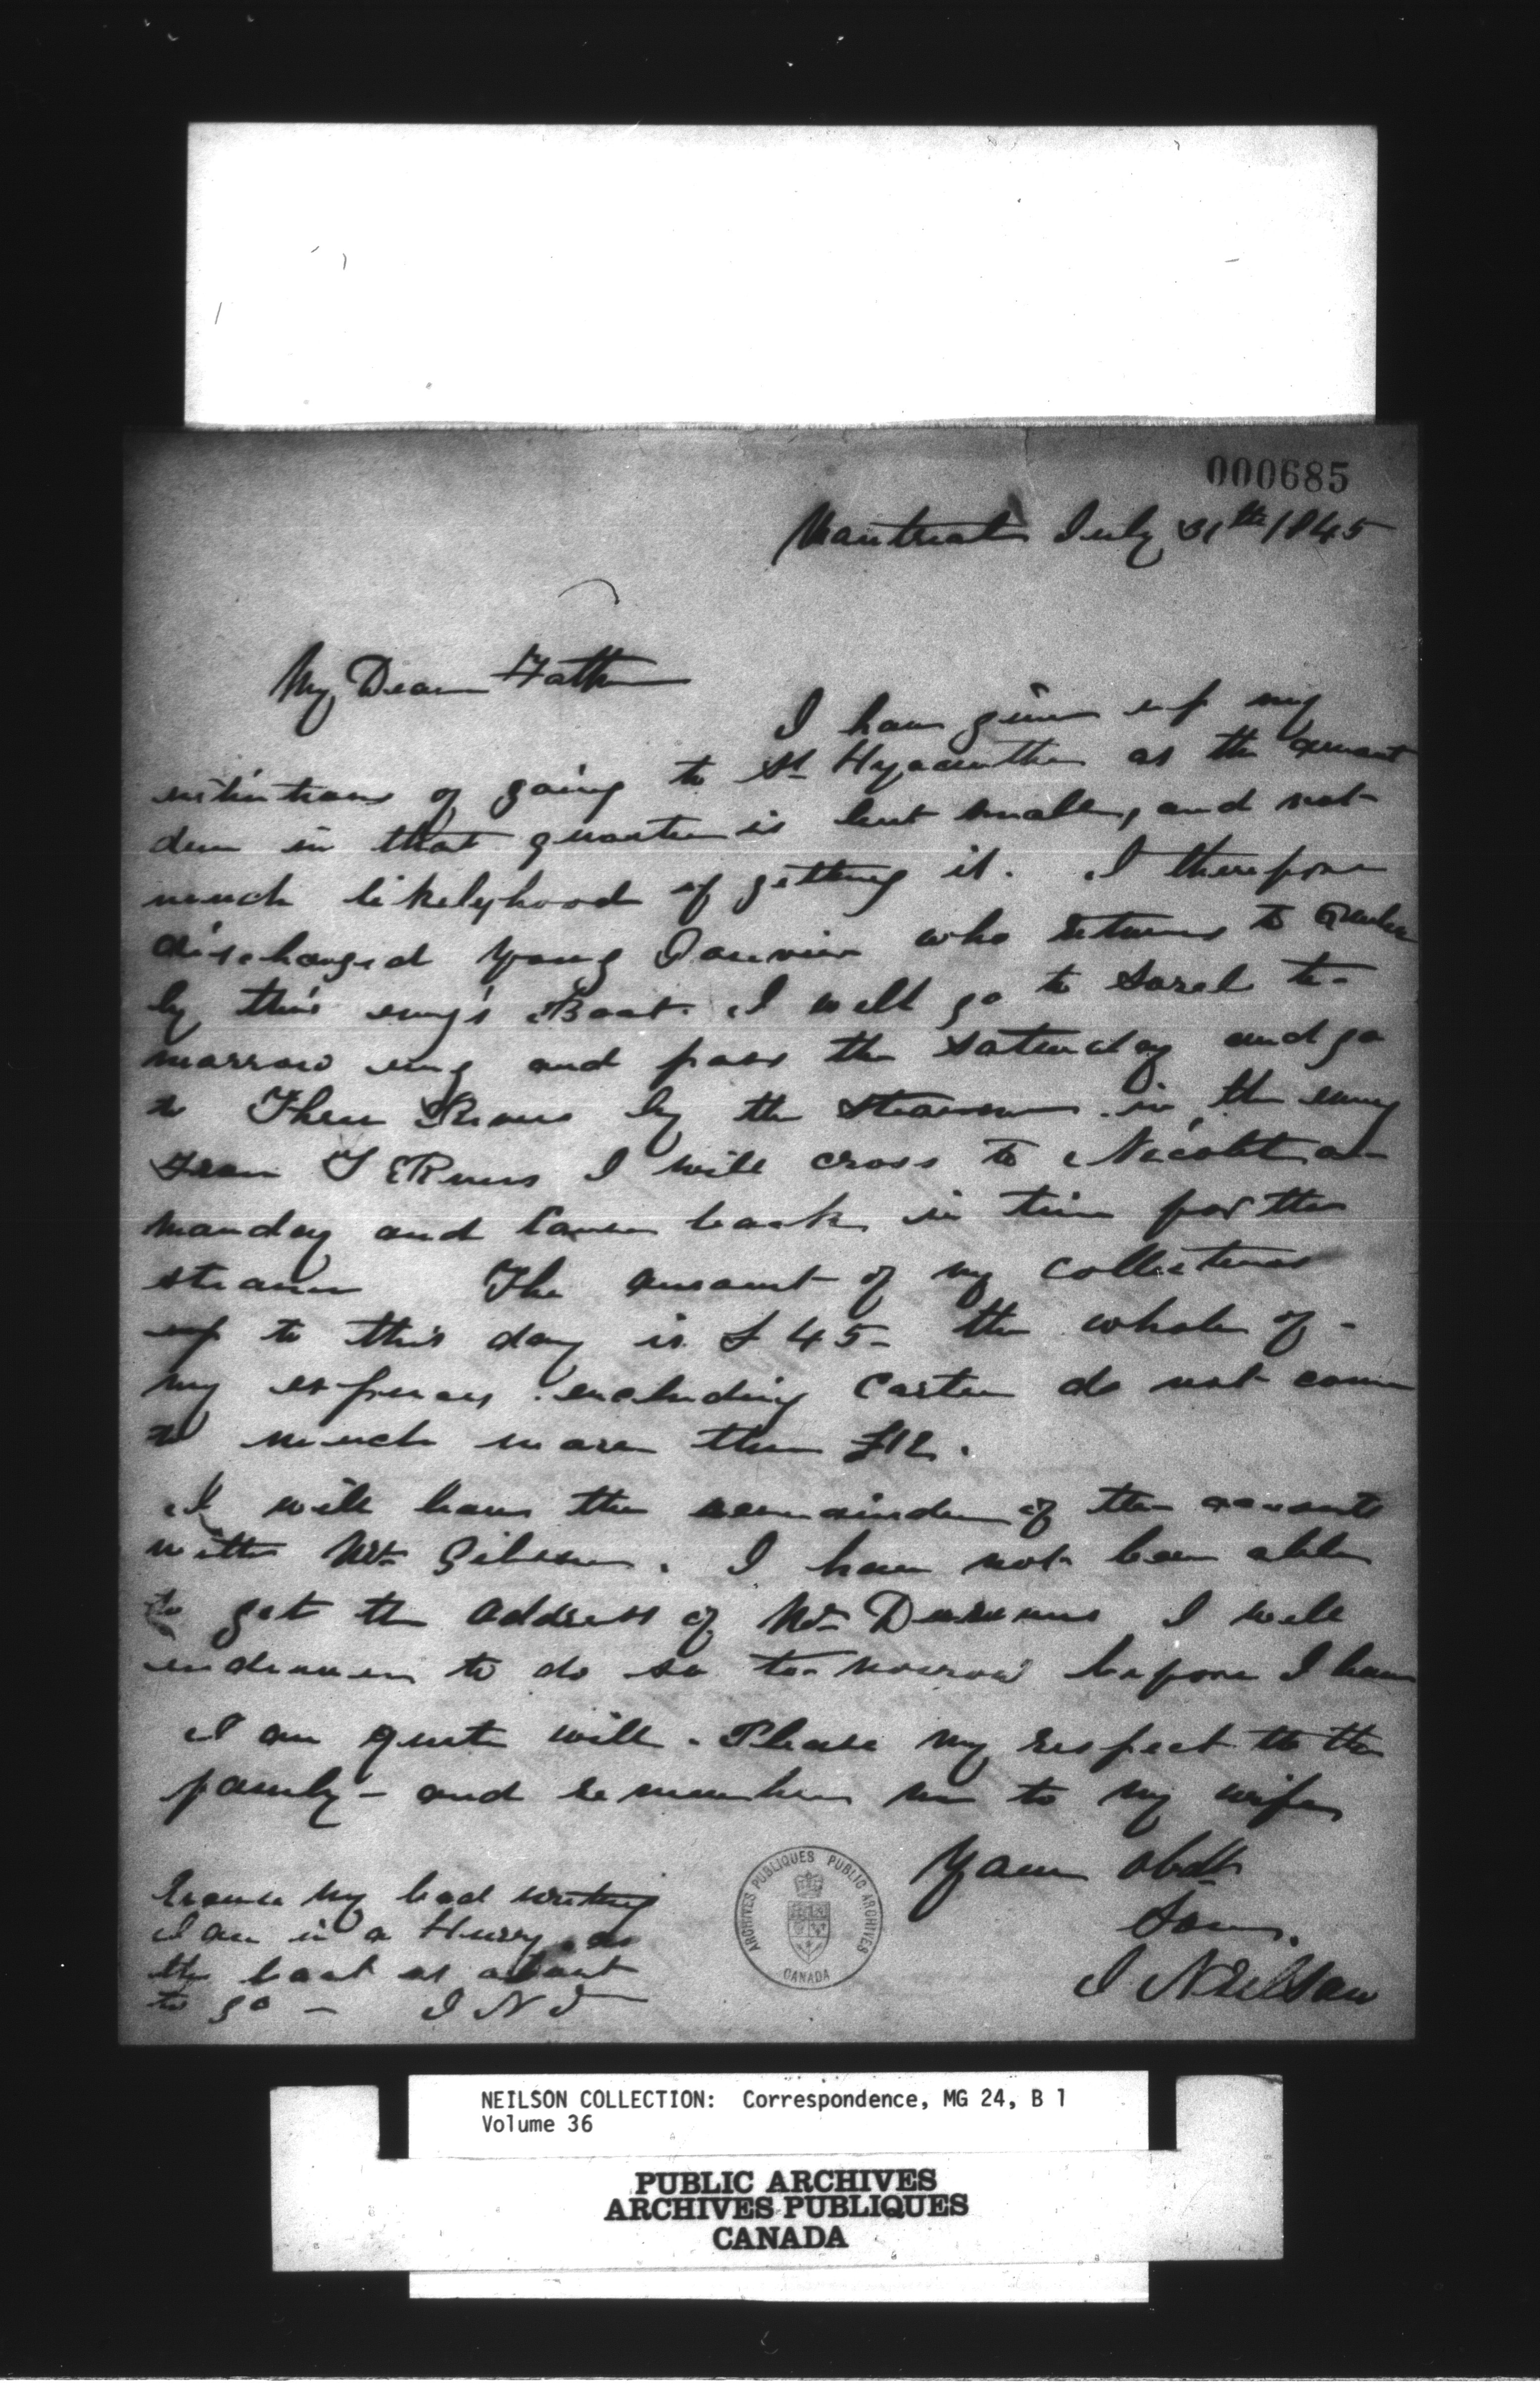 000685
Montreal July 31th 1845
My Dear Father
I have given up my
intentions of going to St Hyacinthe as the amount
due in that quarter is but small, and not
much likelyhood of getting it. I therefore
discharged young who returns to Quebec
by this evngs Boat. I will go to Sorel to-
morrow evng and pass the Saturday and go
to Three Rivers by the steamer in the evng
From T Rivers I will cross to Nicolet on
monday and Come back in time for the
steamer The amount of my collections
up to this day is £45- the whole of -
my expenses including Carter do not come
to much more than £12.
I will leave the remainder of the accounts
with Mr Gibson. I have not been able
to get the address of Mr I will
endeavour to do so to-morrow before I leave
I am quite well. Please my respect to the
family - and remember me to my wife
Your obdt
Son.
I Neilson
Excuse my bad writing
I am in a Hurry as
the boat is about
to go - I N
ARCHIVES PUBLIQUES PUBLIC ARCHIVES
CANADA
NEILSON COLLECTION: Correspondence, MG 24, B 1
Volume 36
PUBLIC ARCHIVES
ARCHIVES PUBLIQUES
CANADA